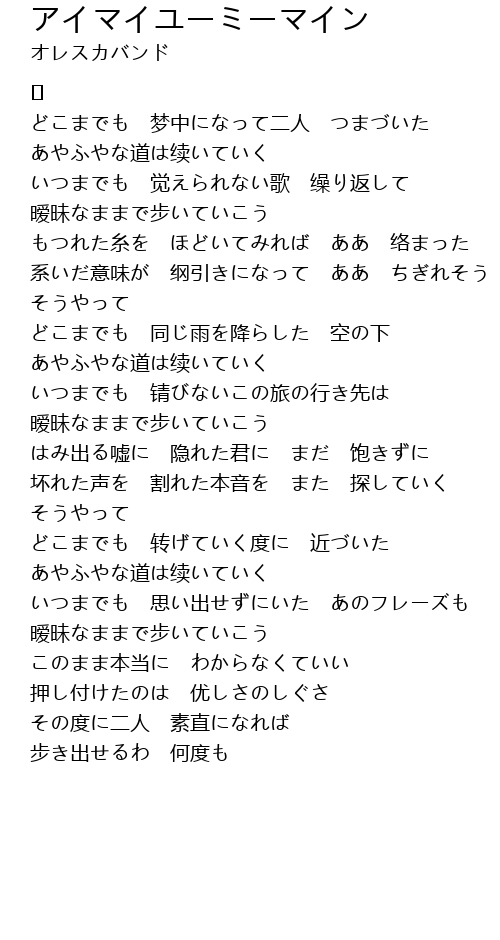 アイマイユーミーマイン
オレスカバンド
どこまでも　梦中になって二人　つまづいた
あやふやな道は续いていく
いつまでも　觉えられない歌　缲り返して
暧昧なままで步いていこう
もつれた糸を　ほどいてみれば　ああ　络まった
系いだ意味が　纲引きになって　ああ　ちぎれそう
そうやって
どこまでも　同じ雨を降らした　空の下
あやふやな道は续いていく
いつまでも　锖びないこの旅の行き先は
暧昧なままで步いていこう
はみ出る嘘に　隐れた君に　まだ　饱きずに
坏れた声を　割れた本音を　また　探していく
そうやって
どこまでも　转げていく度に　近づいた
あやふやな道は续いていく
いつまでも　思い出せずにいた　あのフレーズも
暧昧なままで步いていこう
このまま本当に　わからなくていい
押し付けたのは　优しさのしぐさ
その度に二人　素直になれば
步き出せるわ　何度も